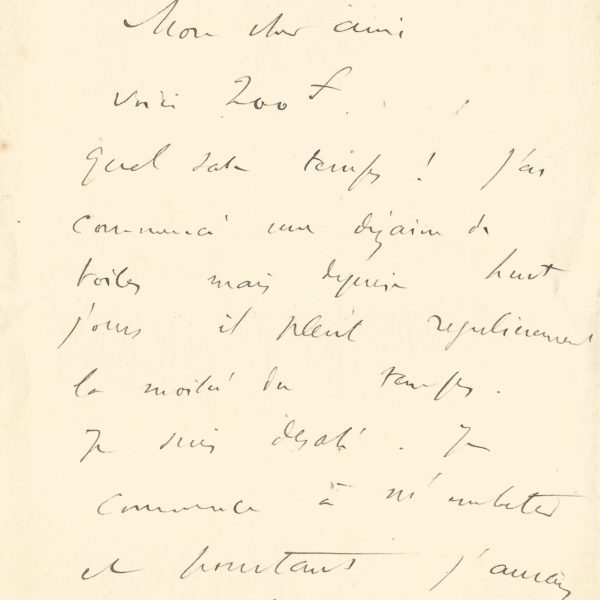 Mon cher ami
voici 200 f
Quel sale temps ! J'ai
commencé une dizaine de
toiles mais depuis huit
jours il pleut regulierement
la moitié du temps.
Je suis désolé. Je
commence à m'embeter
et pourtant j'aurais